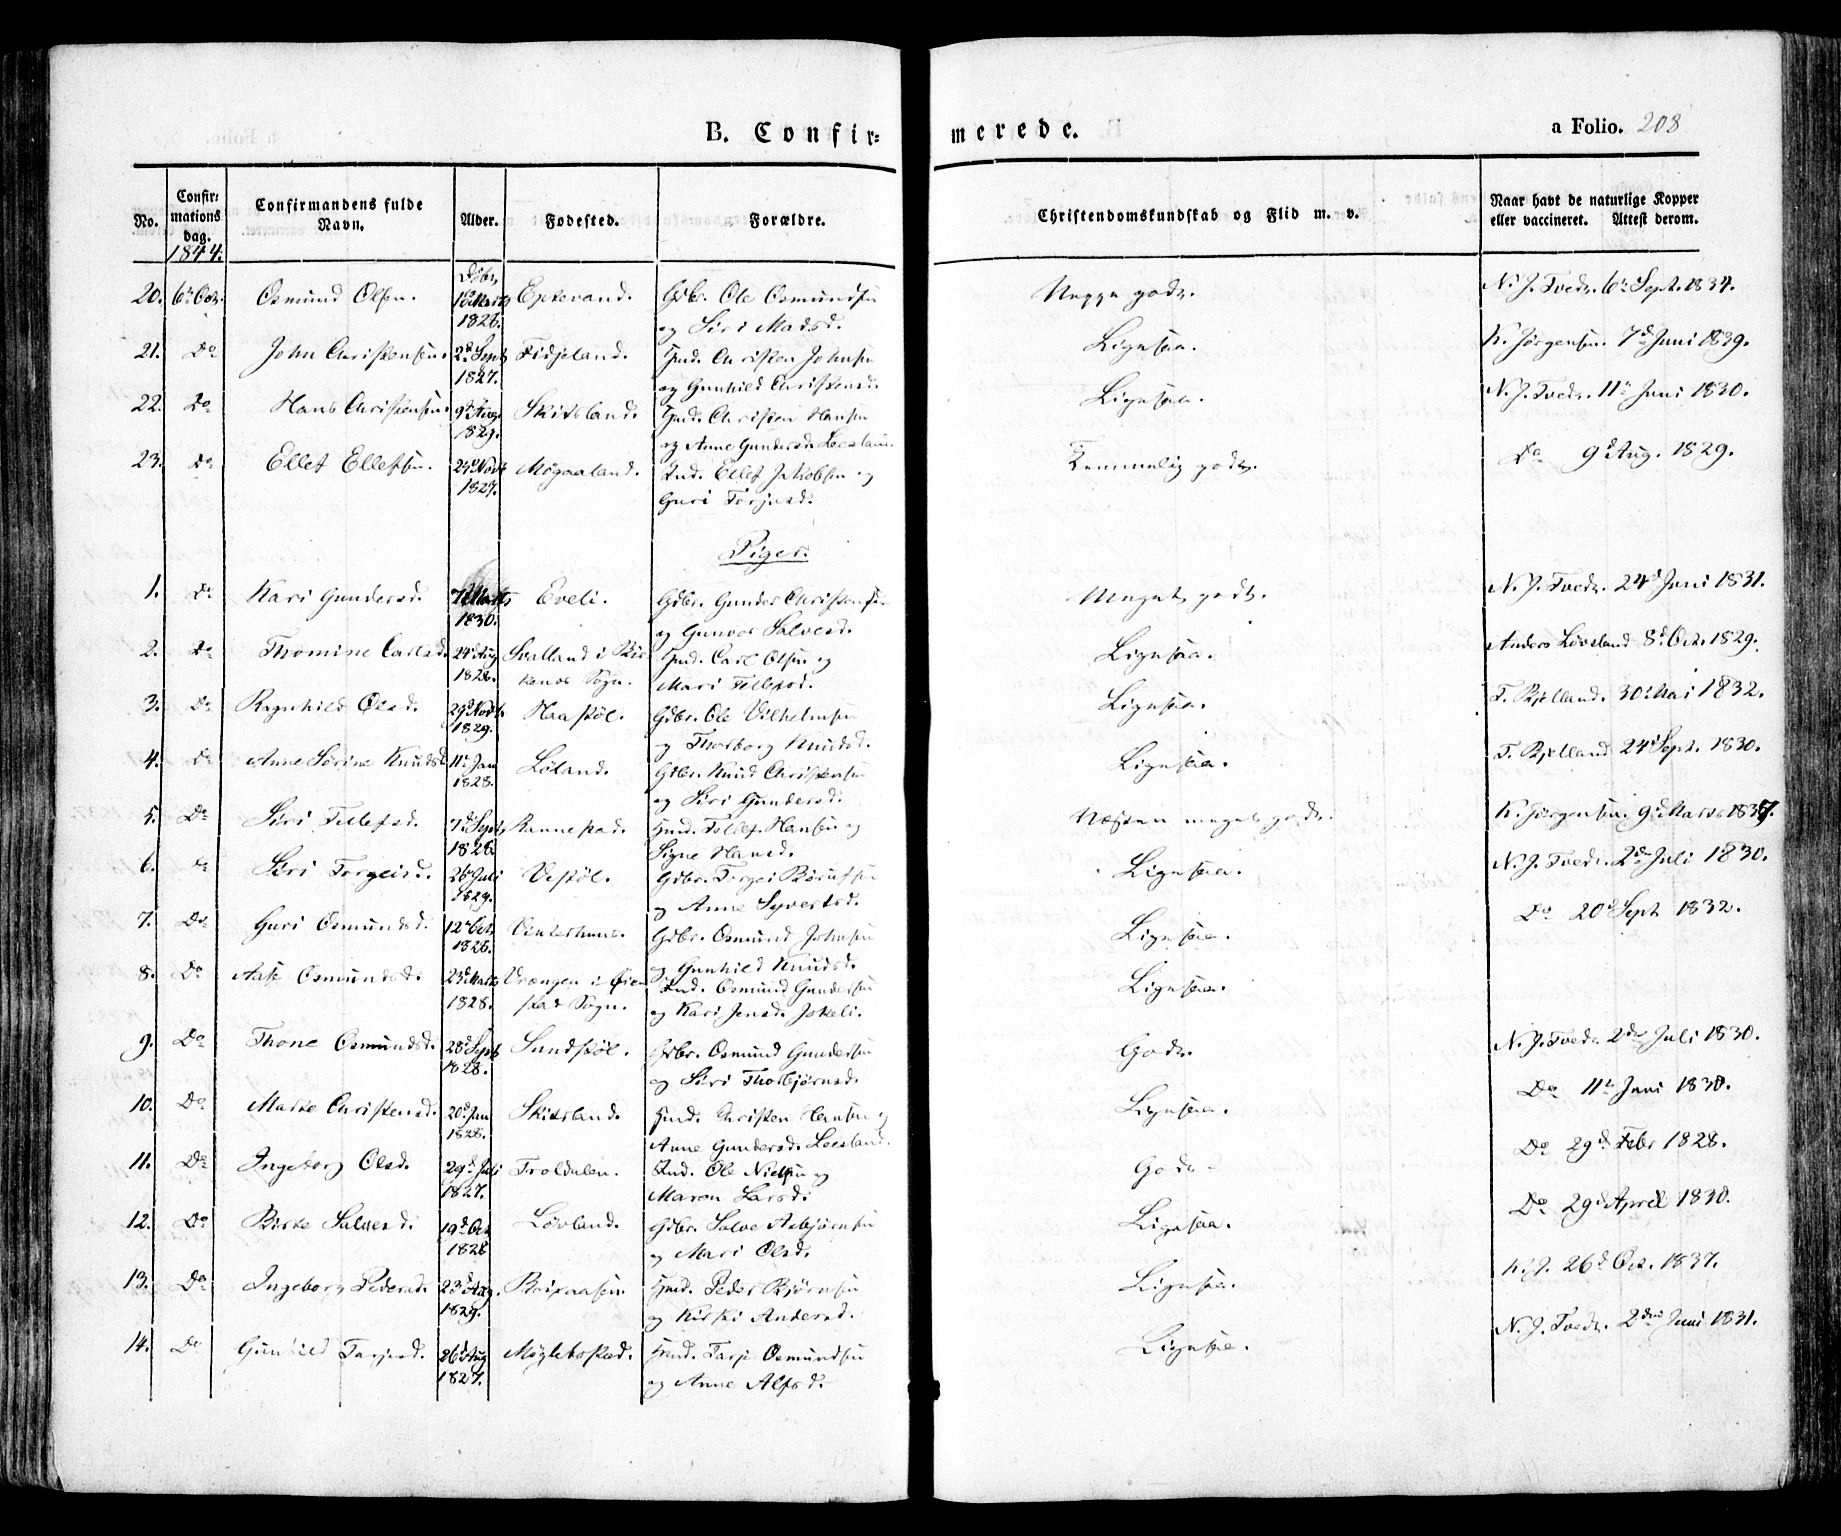 B. Confir= merede. a Folio. 208
No. Confir= mations dag. Confirmandens fulde Navn. Alder. Fødested. Forældre. Christendomskundskab og Flid m. v. Naar havt de naturlige Kopper eller vaccineret. Attest derom.
1844.
20. 6te Oct. Osmund Olsen. 1828. Epterand. Gdbr. Ole Osmundsen og Siri Madsd. N. J. Tvedt. 6te Sept. 1834.
21. Do John Christensen. 2d Sept 1827. Fidjeland. Hmd. Christen Johnsen og Gunhild Christensd. Ligesaa. K. Jørgensen. 7d Juni 1839.
22. Do Hans Christensen. 9d Aug. 1829. Skitsland. Hmd. Christen Hansen og Anne Gundersd. Ligesaa. N. J. Tvedt. 11te Juni 1830.
23. Do Ellef Ellefsen. 24d Novb 1827. Møgaaland. Ind. Ellef Jakobsen og Guri Torjusd. Temmelig godt. Do 9d Aug. 1829.
Piger.
1. Do Kari Gundersd. 7d Marts 1830. Eveli. Gdbr. Gunder Christensen og Gunvor Salvesd. Meget godt. N. J. Tvedt. 24d Juni 1831.
2. Do Thomine Carlsd. 24d Aug 1828. Svalland i Birkenes Sogn. Hmd. Carl Olsen og Mari Tellefsd. Ligesaa. Anders Løvland 8d Oct. 1829.
3. Do Ragnhild Olsd. 29d Novb. 1829. Haastøl. Gdbr. Ole Vilhelmsen og Thorborg Knudsd. Ligesaa. T. Bjelland. 30d Mai 1832.
4. Do Anne Sørine Knudsd 11te Jan 1828. Løland. Gdbr. Knud Christensen og Siri Gundersd. Ligesaa. T. Bjelland 24d Sept. 1830.
5. Do Siri Tellefsd. 7d Sept 1828. Rannestad. Hmd. Tellef Hansen og Signe Hansd. Næsten meget godt. K. Jørgensen. 9d Marts
6. Do Siri Torgeisd. 26d Juli 1829. Vestøl. Gdbr. Torgei og Anne Syvertsd. Ligesaa. N. J. Tvedt. 2d Juli 1830.
7. Do Guri Osmundsd. 12te Oct. 1828. Vinterhuus. Gdbr. Osmund Johnsen og Gunhild Knudsd. Ligesaa. Do 20d Sept 1832.
8. Do Aase Osmundsd. 23d Marts 1828. Vrængen i Øiestad Sogn. Ind. Osmund Gundersen og Kari Jensd. Jokeli. Ligesaa.
9. Do Thone Osmundsd. 28d Sept 1828. Sundstøl. Gdbr. Osmund Gundersen og Siri Thorbjørnsd. Godt. N. J. Tvedt 2den Juli 1830.
10. Do Marte Christensd. 20d Jan 1828. Skitsland. Hmd. Christen Hansen og Anne Gundersd. Ligesaa. Do 11te Juni 1830.
11. Do Ingeborg Olsd. 29d Juli 1827. Troldalen. Ind. Ole Nielsen og Maren Larsd. Godt. Do 29d Febr 1828.
12. Do Birte Salvesd. 19d Oct 1828 Løvland. Gdbr. Salve Asbjørnsen og Mari Olsd. Ligesaa. Do 29d April 1830.
13. Do Ingeborg Pedersd. 23d Aug. 1829. Hmd. Peder Bjørnsen og Kirsti Andersd. Ligesaa. K. J. 26d Oct. 1837.
14. Do Gunhild Tarjesd. 26d Aug 1827. Møglebostad. Hmd. Tarje Osmundsen og Anne Alfsd. Ligesaa. N. J. Tvedt. 2den Juni 1831.